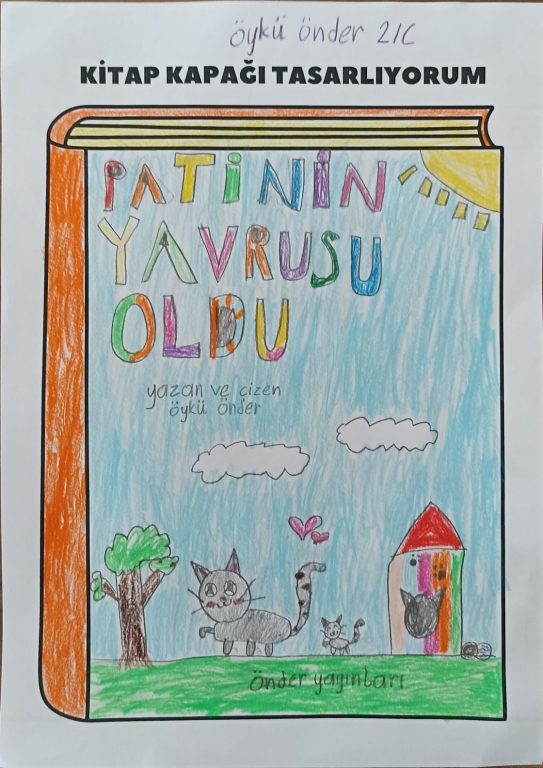 öykü önder 2/C
KİTAP KAPAĞI TASARLIYORUM
PATİNİN
YAVRUSU
OLDU
yazan ve çizen
öykü önder
önder yayınları